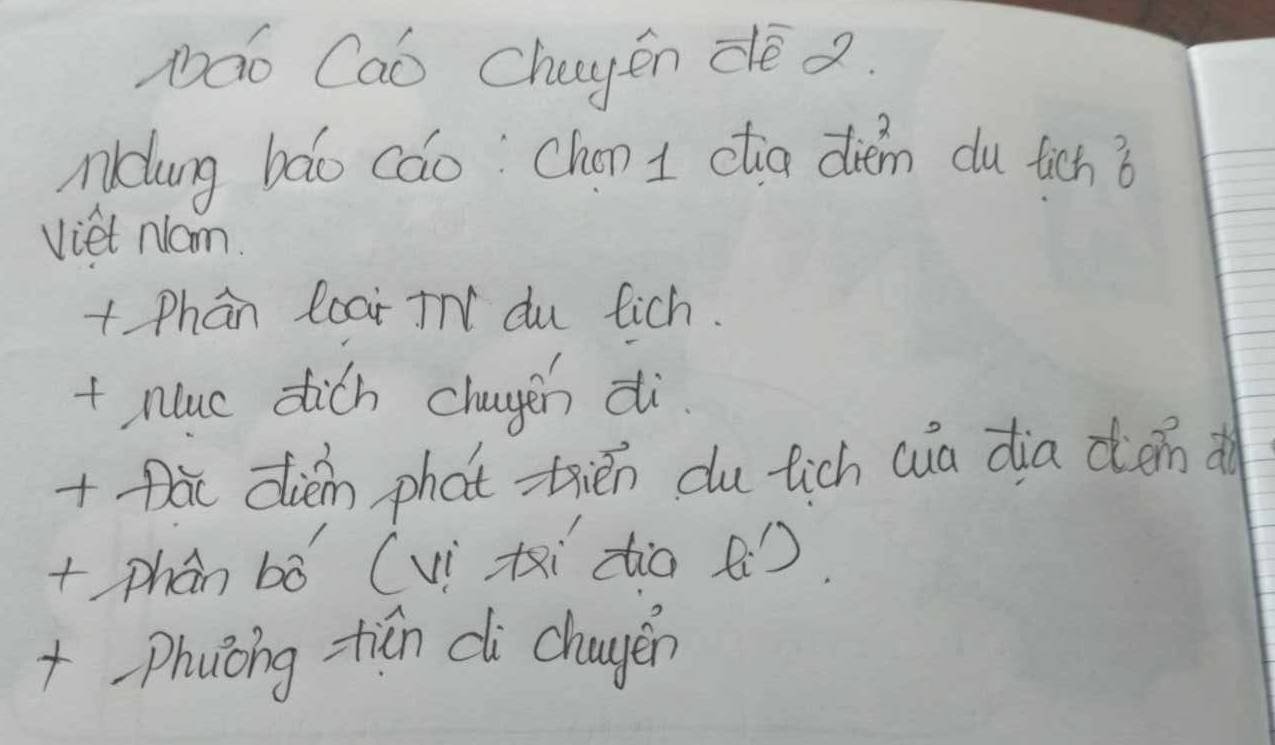 Báo Cáo Chuyên đề 2.
Ndung báo cáo : Chọn 1 địa điểm du lịch ở
Việt Nam.
+ Phân loại TN du lịch.
+ Mục đích chuyến đi.
+ Đặc điểm phát triển du lịch của địa điểm
+ Phân bố (vị trí địa lí).
+ Phương tiện di chuyển